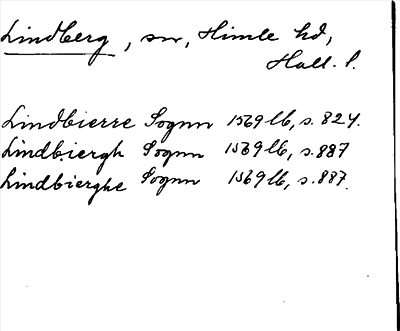 Lindberg, sn, Himle hd,
Hall. l.
Lindbierre Sognn 1569 lb, s. 824.
Lindbiergh Sognn 1569 lb, s. 887
Lindbierghe Sognn 1569 lb, s. 887.